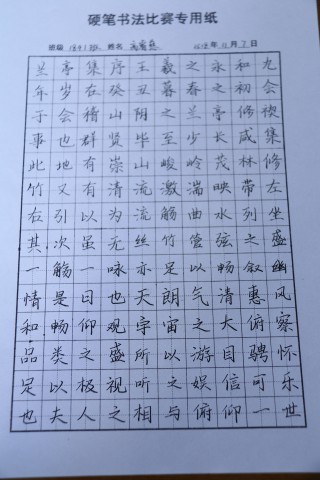 硬笔书法比赛专用纸
班级 姓名 年11月7日
兰亭集序王羲之永和九
年岁在癸丑暮春之初会
于会稽山阴之兰亭修禊
事也群贤毕至少长咸集
此地有崇山峻岭茂林修
竹又有清流激湍映带左
右引以为流觞曲水列坐
其次虽无丝竹管弦之盛
一觞一咏亦足以畅叙幽
情是日也天朗气清惠风
和畅仰观宇宙之大俯察
品类之盛所以游目骋怀
足以极视听之娱信可乐
也夫人之相与俯仰一世